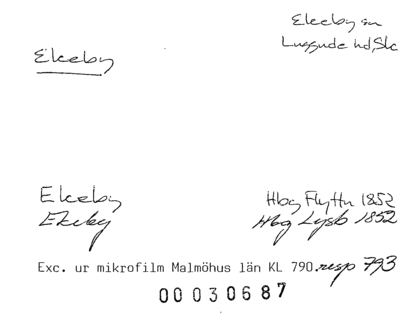 Ekeby sn
Luggude hd, Skå
Ekeby
Ekeby Hbg Flyttn 1852
Ekeby Hbg Lysb 1852
Exc. ur mikrofilm Malmöhus län KL 790. resp 793
00030687